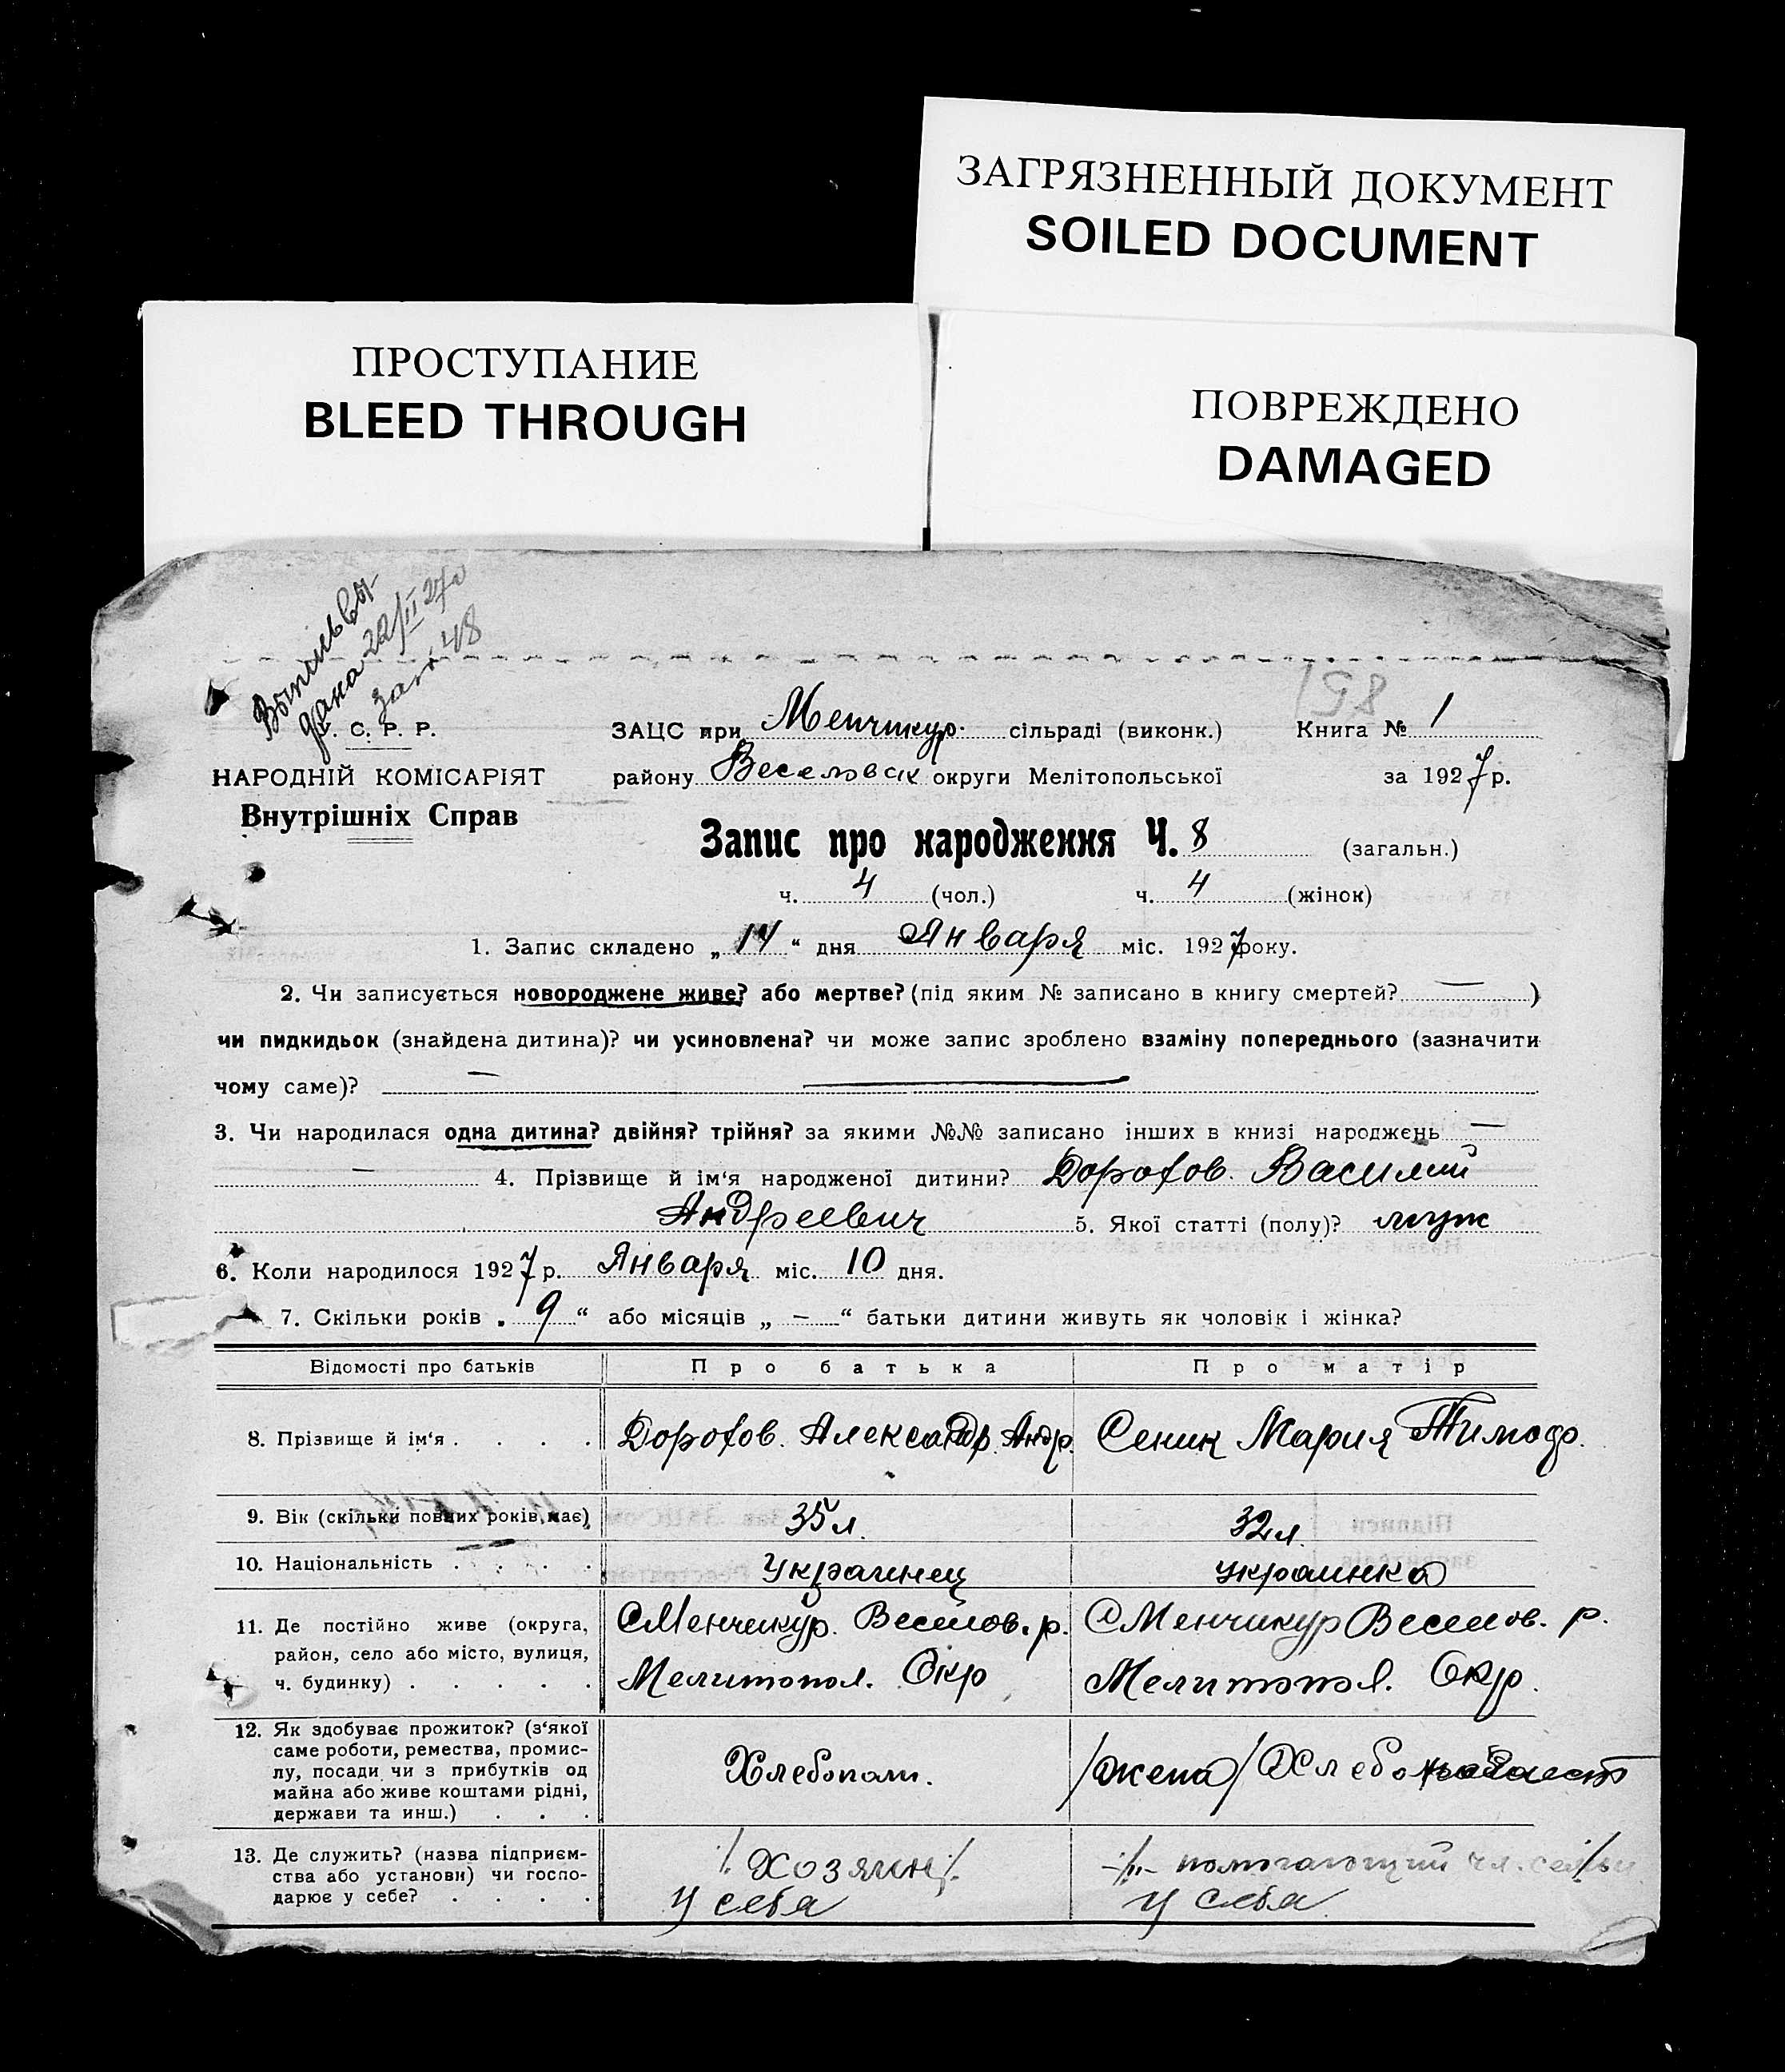 ЗАГРЯЗНЕННЫЙ ДОКУМЕНТ
SOILED DOCUMENT
ПРОСТУПАНИЕ
BLEED THROUGH
ПОВРЕЖДЕНО
DAMAGED
дана 22/II 27
48
С. Р. Р.
НАРОДНІЙ КОМІСАРІЯТ
Внутрішніх Справ
ЗАЦС при Менчикур. сільраді (виконк.) Книга № 1
району Веселовск округи Мелітопольської за 1927 р.
Запис про народження Ч. 8 (загальн.)
ч. 4 (чол.) ч. 4 (жінок)
1. Запис складено „14“ дня Января міс. 1927 року.
2. Чи записується новороджене живе? або мертве? (під яким № записано в книгу смертей? — )
чи пидкидьок (знайдена дитина)? чи усиновлена? чи може запис зроблено взаміну попереднього (зазначити
чому саме)? —
3. Чи народилася одна дитина? двійня? трійня? за якими №№ записано інших в книзі народжень —
— 4. Прізвище й ім‘я народженої дитини? Дорофов. Василий
Андреевич 5. Якої статті (полу)? муж
6. Коли народилося 1927 р. Января міс. 10 дня.
7. Скільки років „9“ або місяців „—“ батьки дитини живуть як чоловік і жінка?
Відомості про батьків Про батька Про матір
8. Прізвище й ім‘я . . . . Дорофов. Александр. Андр. Сеник Мария Тимоф.
9. Вік (скільки повних років має) 35 л. 32 л.
10. Національність . . . . Украинец украинка
11. Де постійно живе (округа, район, село або місто, вулиця, ч. будинку) . . . . .
С Менчикур. Веселов. р.
Мелитопол. Окр
С Менчикур Веселов. р.
Мелитопол. Окр.
12. Як здобуває прожиток? (з‘якої саме роботи, ремества, промислу, посади чи з прибутків од майна або живе коштами рідні, держави та инш.) . . .
Хлебопаш.
/жена/
13. Де служить? (назва підприємства або установи) чи господарює у себе? . . . .
/. Хозяин /.
У себя
помогающий чл. семьи
У себя